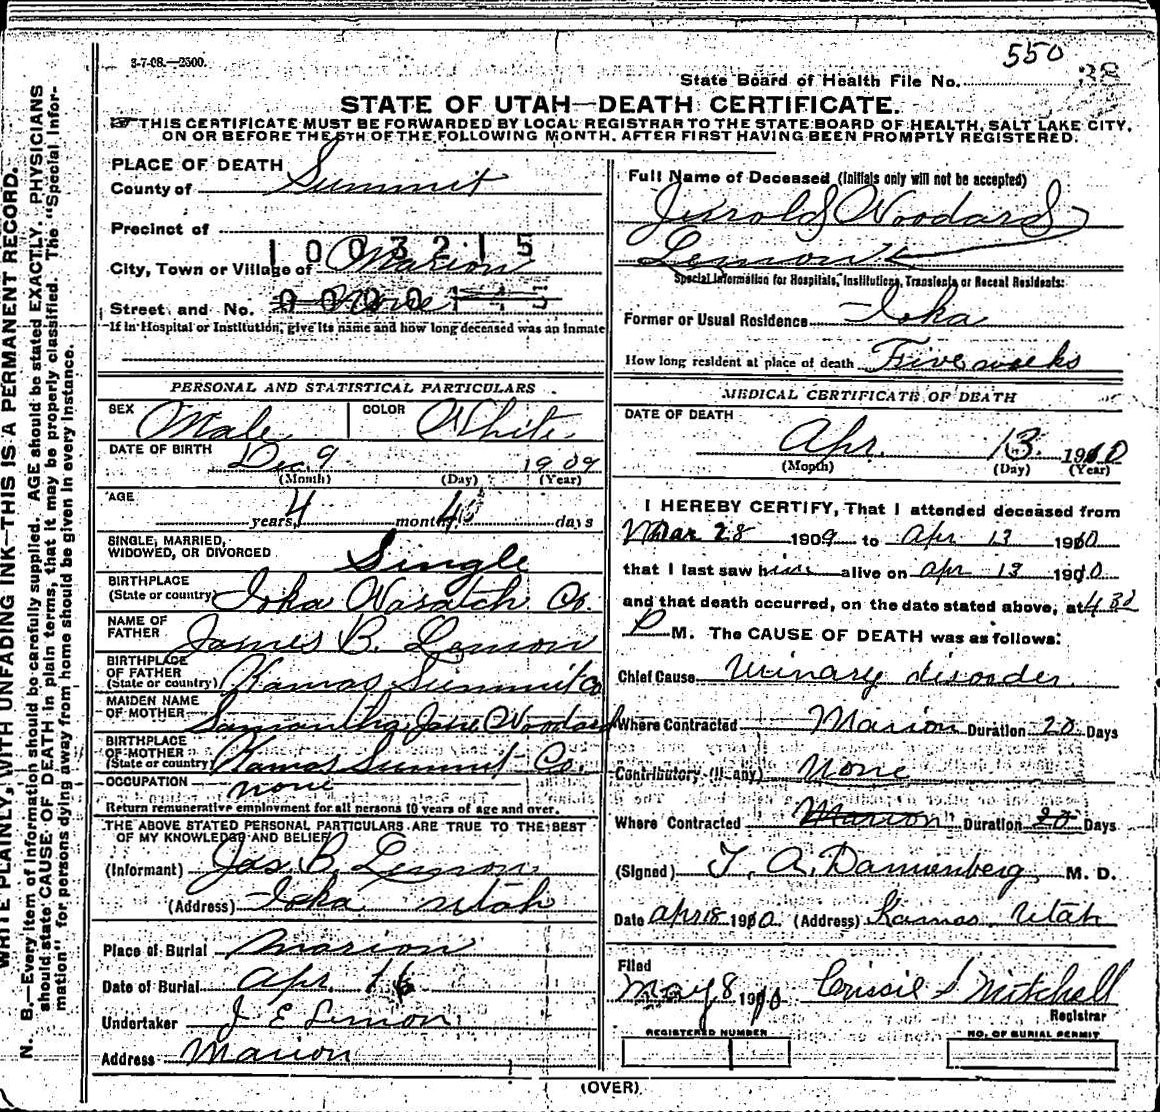 8-7-08.—2500.
550
38
State Board of Health File No.
STATE OF UTAH—DEATH CERTIFICATE.
THIS CERTIFICATE MUST BE FORWARDED BY LOCAL REGISTRAR TO THE STATE BOARD OF HEALTH, SALT LAKE CITY,
ON OR BEFORE THE 5TH OF THE FOLLOWING MONTH, AFTER FIRST HAVING BEEN PROMPTLY REGISTERED.
WRITE PLAINLY, WITH UNFADING INK—THIS IS A PERMANENT RECORD.
N. B.—Every item of information should be carefully supplied. AGE should be stated EXACTLY. PHYSICIANS
should state CAUSE OF DEATH in plain terms, that it may be properly classified. The "Special Infor-
mation" for persons dying away from home should be given in every instance.
PLACE OF DEATH
County of Summit
Precinct of
1003215
City, Town or Village of Marion
Street and No. None
If in Hospital or Institution, give its name and how long deceased was an inmate
PERSONAL AND STATISTICAL PARTICULARS
SEX Male COLOR White
DATE OF BIRTH Dec 9 1909
(Month) (Day) (Year)
AGE
years, 4 months, 4 days
SINGLE, MARRIED,
WIDOWED, OR DIVORCED Single
BIRTHPLACE
(State or country) Ioka Wasatch Co.
NAME OF
FATHER James B. Lemon
BIRTHPLACE
OF FATHER
(State or country) Kamas Summit Co
MAIDEN NAME
OF MOTHER Samantha Jane Woodard
BIRTHPLACE
OF MOTHER
(State or country) Kamas Summit Co.
OCCUPATION none
Return remunerative employment for all persons 10 years of age and over.
THE ABOVE STATED PERSONAL PARTICULARS ARE TRUE TO THE BEST
OF MY KNOWLEDGE AND BELIEF
(Informant) Jas B. Lemon
(Address) Ioka Utah
Place of Burial Marion
Date of Burial Apr. 16
Undertaker J E Lemon
Address Marion
Full Name of Deceased (Initials only will not be accepted)
Jurold Woodard
Lemon
Special Information for Hospitals, Institutions, Transients or Recent Residents:
Former or Usual Residence Ioka
How long resident at place of death Five weeks
MEDICAL CERTIFICATE OF DEATH
DATE OF DEATH
Apr. 13. 1910
(Month) (Day) (Year)
I HEREBY CERTIFY, That I attended deceased from
Mar 28 1909 to Apr 13 1910
that I last saw him alive on Apr 13 1910
and that death occurred, on the date stated above, at 430
P M. The CAUSE OF DEATH was as follows:
Chief Cause Urinary disorder
Where Contracted Marion Duration 20 Days
Contributory (If any) none
Where Contracted Marion Duration 20 Days
(Signed) T. A. Dannenberg M. D.
Date Apr 18 1910 (Address) Kamas, Utah
Filed
May 8 1910 Crissie S Mitchell
Registrar
REGISTERED NUMBER NO. OF BURIAL PERMIT
(OVER)